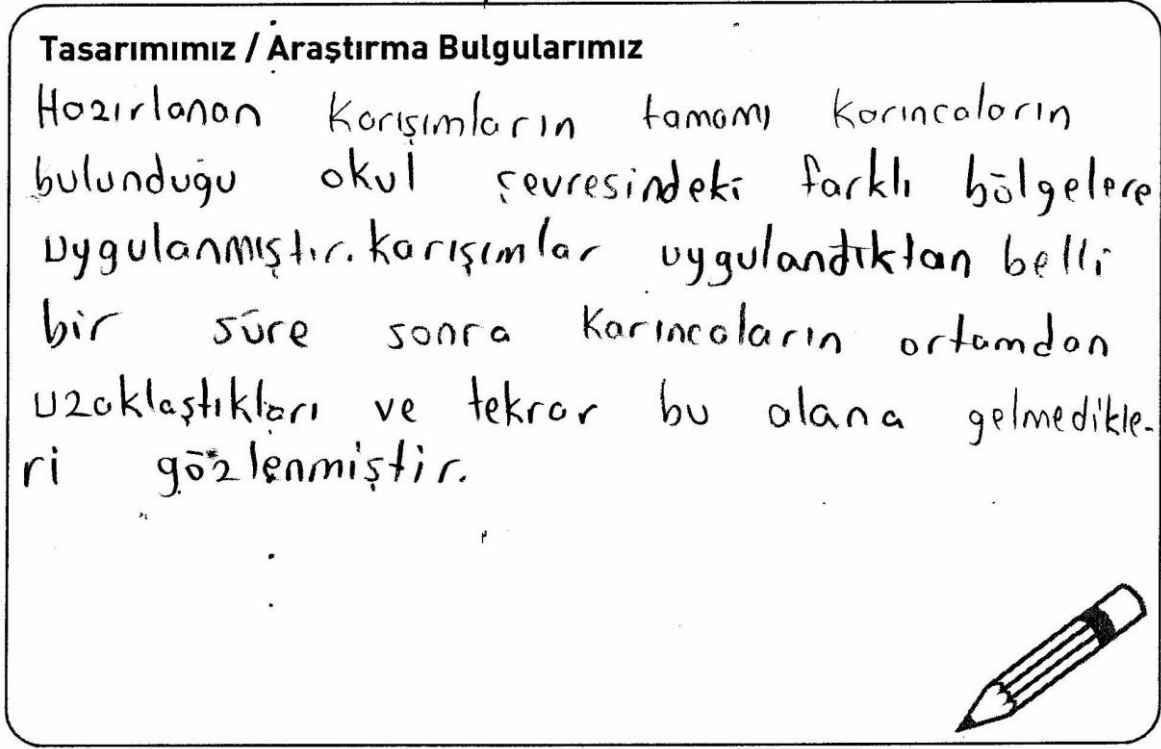 Tasarımımız / Araştırma Bulgularımız
Hazırlanan Karışımların tamamı Karıncaların
bulunduğu okul çevresindeki farklı bölgelere
uygulanmıştır. karışımlar uygulandıktan belli
bir süre sonra Karıncaların ortamdan
uzaklaştıkları ve tekrar bu alana gelmedikle-
ri gözlenmiştir.